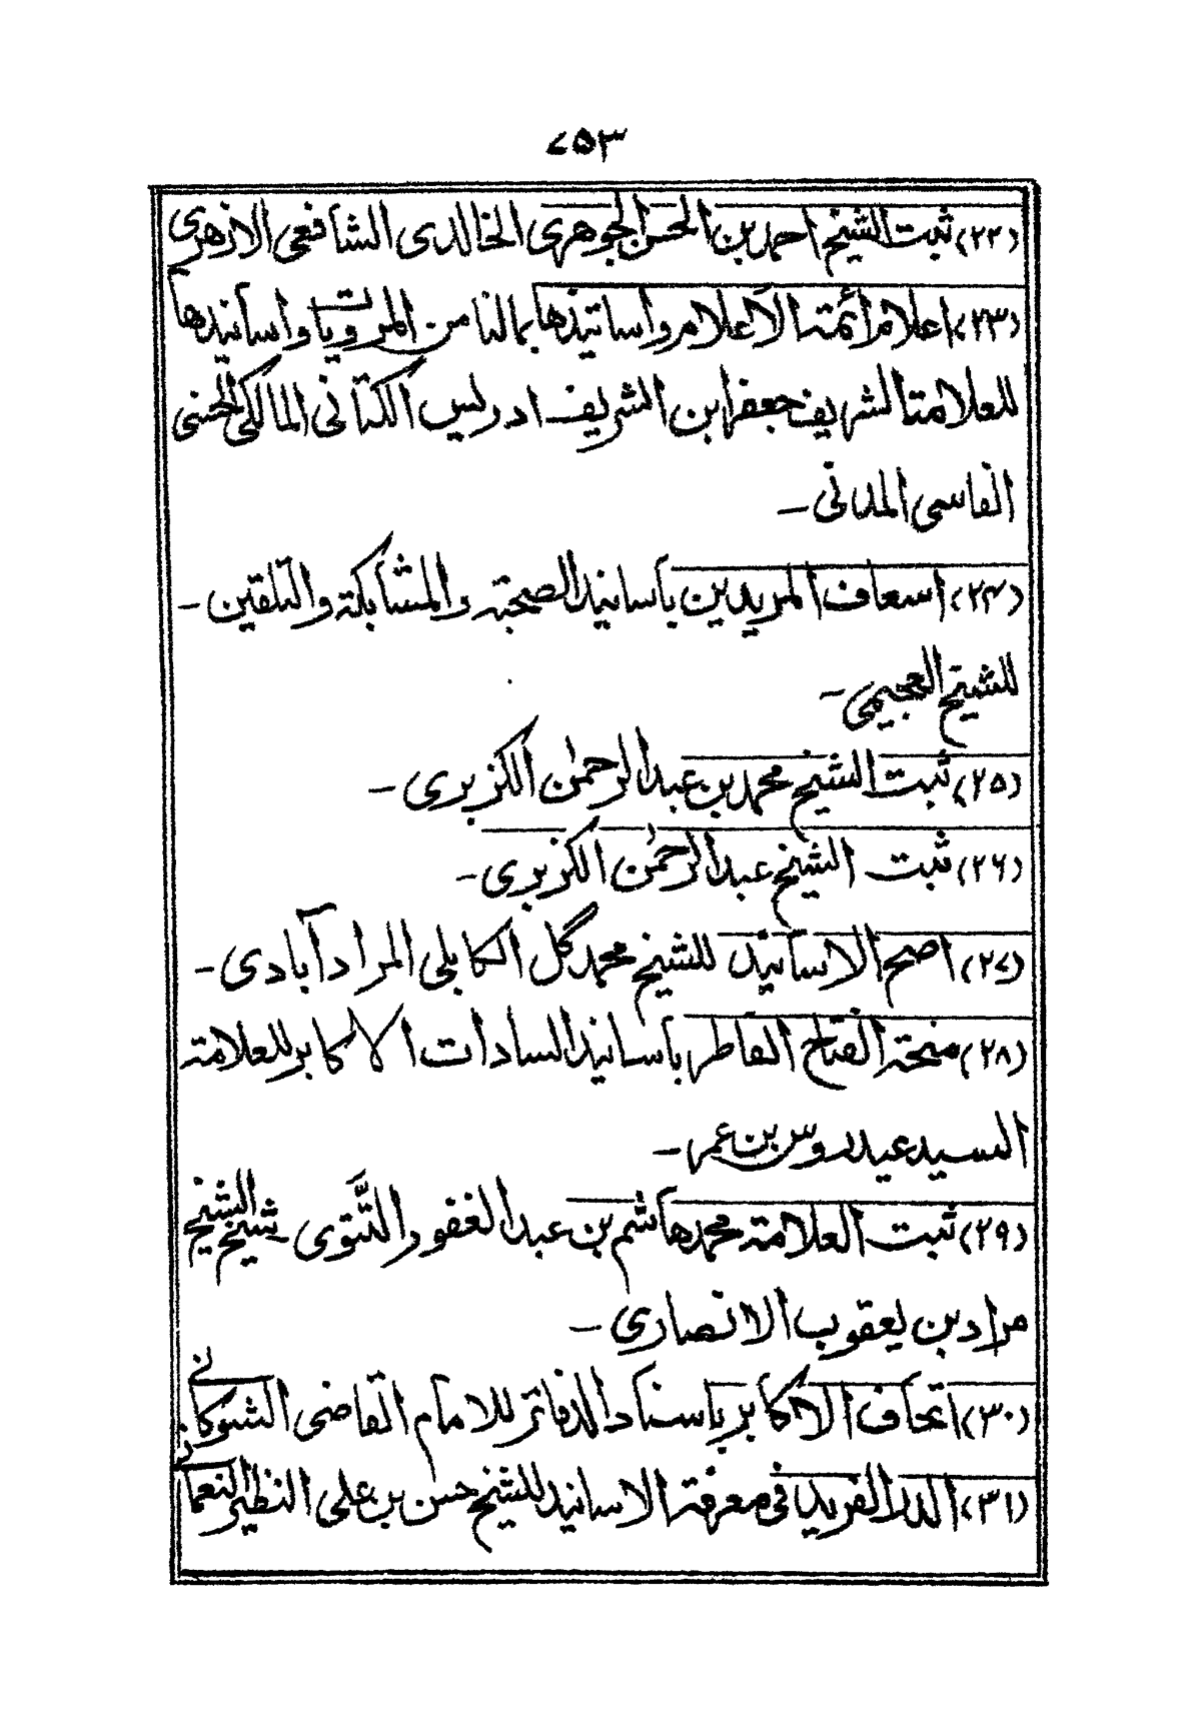 ۷۵۳
(۲۲) ثبت الشيخ احمد بن الحسن الجوهرى الخالدى الشافعى الازهرى
(۲۳) اعلام أئمته الاعلام واساتيذها بمالنا من المرويات واسانيدها
للعلامتہ الشريف جعفر ابن الشريف ادريس الكتانى المالكى الحسنى
الفاسى المدنى ـ
(۲۴) اسعاف المريدين بأسانيد الصحبتہ والمشابكتہ والتلقين ـ
للشيخ العجيمى ـ
(۲۵) ثبت الشيخ محمد بن عبد الرحمٰن الكزبرى ـ
(۲۶) ثبت الشيخ عبد الرحمٰن الكزبرى ـ
(۲۷) اصح الاسانيد للشيخ محمد گل الكابلى المرادآبادى ـ
(۲۸) منحتہ الفتاح الفاطر بأسانيد السادات الاكابر للعلامتہ
السيد عيدروس بن عمر ـ
(۲۹) ثبت العلامتہ محمد هاشم بن عبد الغفور التَّتوى ـ شيخ الشيخ
مراد بن يعقوب الانصارى ـ
(۳۰) اتحاف الاكابر بإسناد الدفاتر للامام القاضى الشوكانى
(۳۱) الدر الفريد فى معرفتہ الاسانيد للشيخ حسن بن على النظير النعمانى